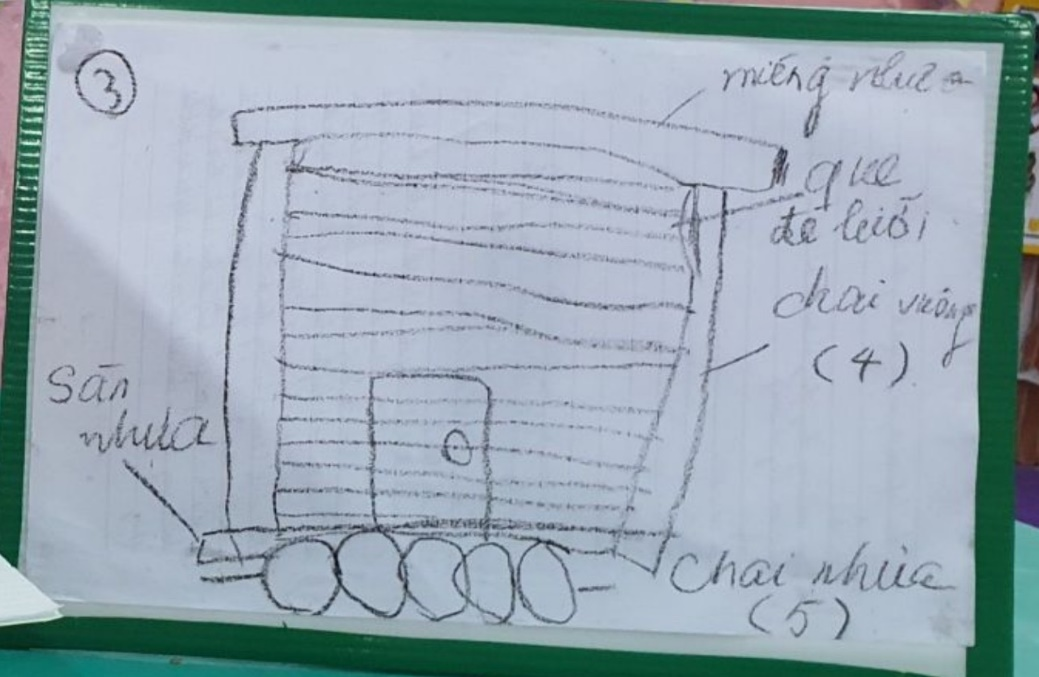 3
miếng nhựa
que
đè lưỡi
chai vuông
(4)
Sàn
nhựa
Chai nhựa
(5)